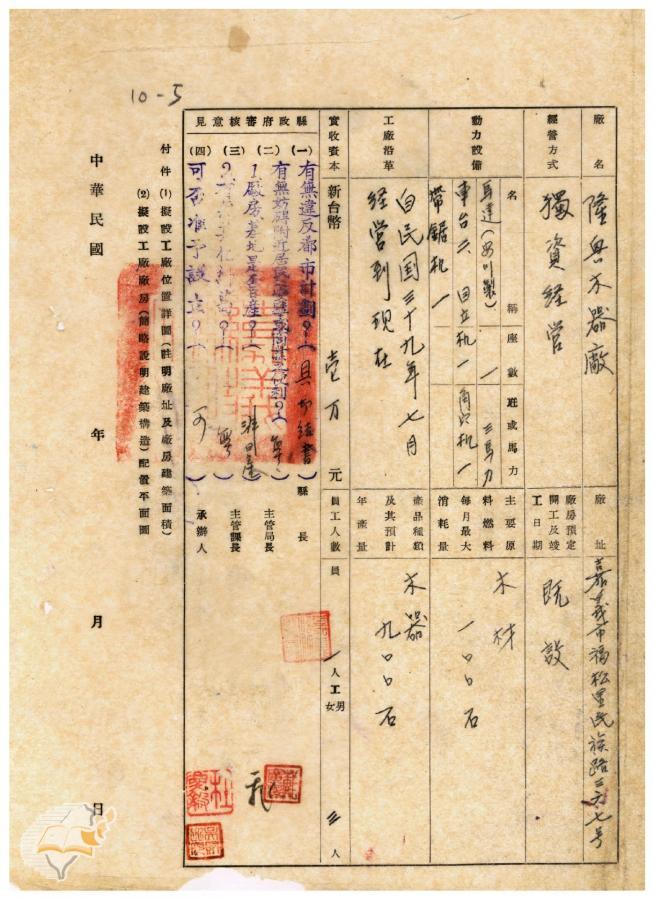 10-5
廠名
隆興木器廠
廠址
嘉義市福松里民族路三六七号
經營方式
獨資経营
廠房預定開工及竣工日期
既設
動力設備
名稱
座數
瓩或馬力
馬達(安川製)
一
三馬力
車台六
回立机一
角穴机一
帶鋸机一
主要原料燃料每月最大消耗量
木材
一〇〇石
工廠沿革
自民国三十九年七月
経営到現在
產品種類及其預計年產量
木器
九〇〇石
實收資本
新台幣
壹万
元
員工人數
員
一
人
工
男
女
三
人
縣政府審核意見
(一)有無違反都市計劃?(
)縣長
(二)有無妨碍附近居民
1廠房基地是否
)主管局長
(三)
)主管課長
(四)可否准予設立?(
可
)承辦人
付件(1)擬設工廠位置詳圖(註明廠址及廠房建築面積)
(2)擬設工廠廠房(簡略說明建築構造)配置平面圖
中華民國 年 月 日